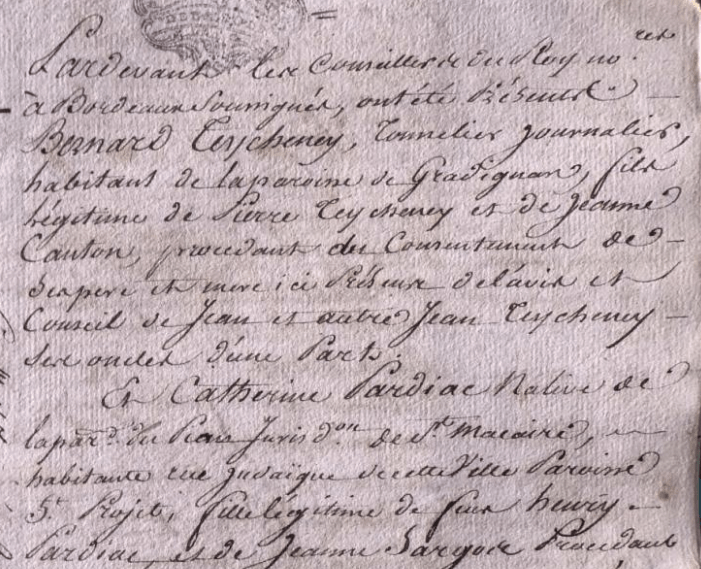 Pardevant les Conseillers du Roy no.res
à Bordeaux Soussignés, ont été Présents
Bernard Teycheney, Tonnelier journalier,
habitant de la paroisse de Gradignan, fils
légitime de Pierre Teycheney et de Jeanne
Canton, procedant du Consentement de
ses pere et mere ici Présens de l'avis et
Conseil de Jean et autre Jean Teycheney
ses oncles d'une Part.
Et Catherine Pardiac Native de
la par.e du Pian Jurisd.on de St. Macaire,
habitante rue Judaïque de cette Ville Paroisse
St. Projet, fille légitime de feus henry
Pardiac, et de Jeanne Procedant